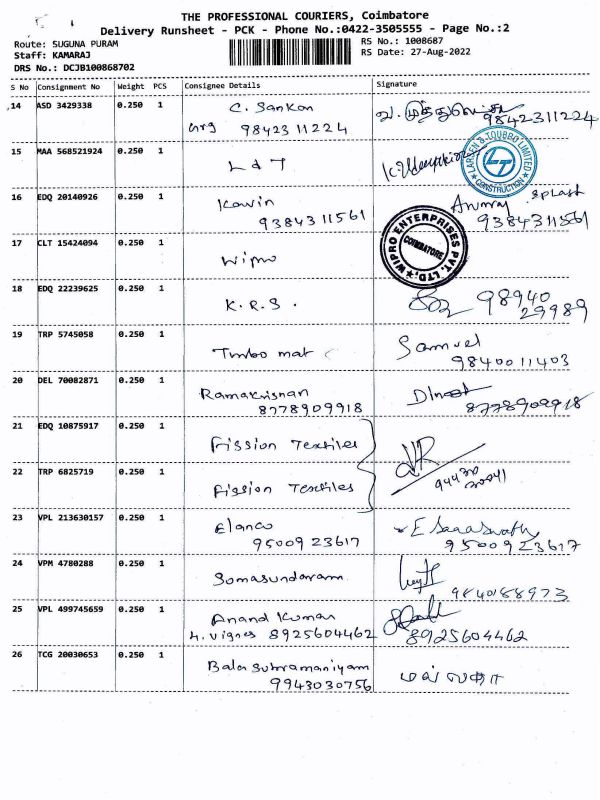 THE PROFESSIONAL COURIERS, Coimbatore
Delivery Runsheet - PCK - Phone No.:0422-3505555 - Page No.:2
Route: SUGUNA PURAM
RS No.: 1008687
Staff: KAMARAJ
RS Date: 27-Aug-2022
DRS No.: DCJB100868702
S No Consignment No Weight PCS Consignee Details Signature
14 ASD 3429338 0.250 1 C. Sankar
98423 11224 9842311224
15 MAA 568521924 0.250 1 L & T
LARSEN & TOUBRO LIMITED
LT
CONSTRUCTION
16 EDQ 20140926 0.250 1 Kawin Splash
9384311561 9384311561
17 CLT 15424094 0.250 1 Wipro
WIPRO ENTERPRISES PVT. LTD.
COIMBATORE
18 EDQ 22239625 0.250 1 K.R.S. 98940
29989
19 TRP 5745058 0.250 1 Turbo mat Samuel
9840011403
20 DEL 70082871 0.250 1 Ramakrisnan
8778909918 8778909918
21 EDQ 10875917 0.250 1 Fission Textiles
22 TRP 6825719 0.250 1 Fission Textiles
23 VPL 213630157 0.250 1 Elanco E Saraswathy
9500923617 9500923617
24 VPM 4780288 0.250 1 Somasundaram
9840188973
25 VPL 499745659 0.250 1 Anand Kumar
h. vignes 8925604462 8925604462
26 TCG 20030653 0.250 1 Bala Subramaniyam
9943030756